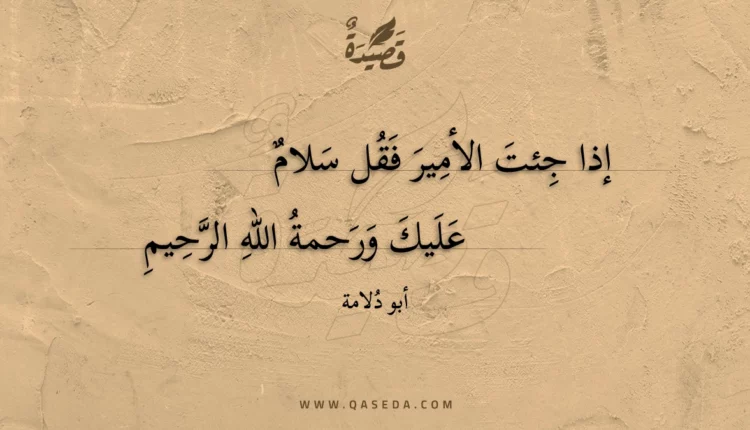 قَصِيدَةٌ
إذا جِئتَ الأمِيرَ فَقُل سَلامٌ
عَلَيكَ وَرَحمةُ اللهِ الرَّحِيمِ
أبو دُلامة
WWW.QASEDA.COM